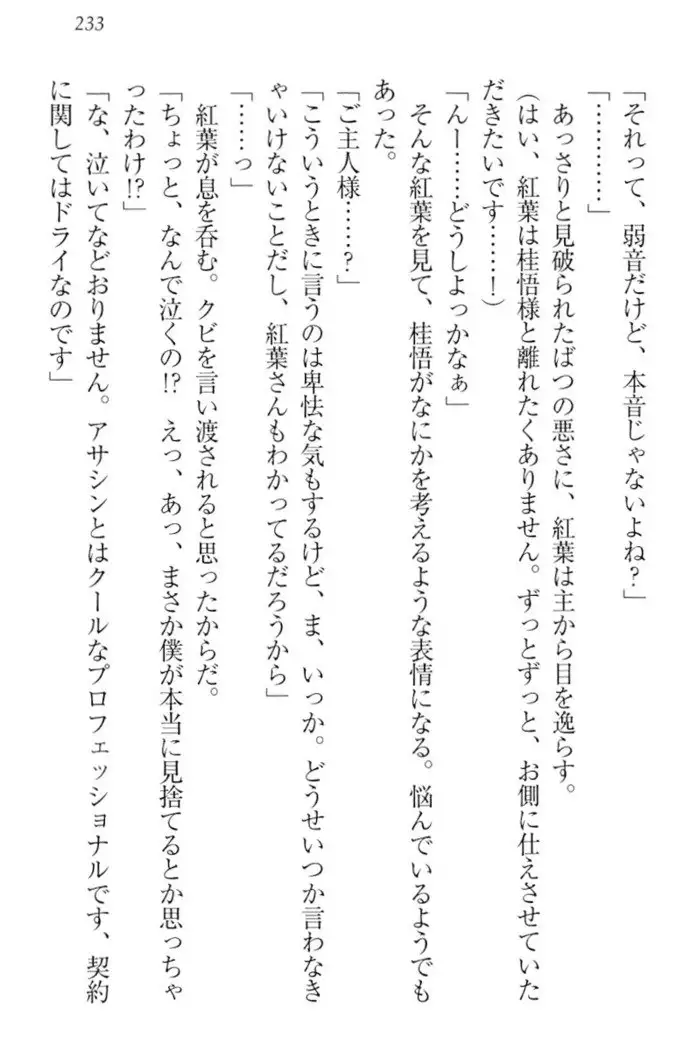 233
「それって、弱音だけど、本音じゃないよね?」
「…………」
　あっさりと見破られたばつの悪さに、紅葉は主から目を逸らす。
(はい、紅葉は桂悟様と離れたくありません。ずっとずっと、お側に仕えさせていた
だきたいです……!)
「んー……どうしよっかなぁ」
　そんな紅葉を見て、桂悟がなにかを考えるような表情になる。悩んでいるようでも
あった。
「ご主人様……?」
「こういうときに言うのは卑怯な気もするけど、ま、いっか。どうせいつか言わなき
ゃいけないことだし、紅葉さんもわかってるだろうから」
「……っ」
　紅葉が息を呑む。クビを言い渡されると思ったからだ。
「ちょっと、なんで泣くの!?　えっ、あっ、まさか僕が本当に見捨てるとか思っちゃ
ったわけ!?」
「な、泣いてなどおりません。アサシンとはクールなプロフェッショナルです、契約
に関してはドライなのです」